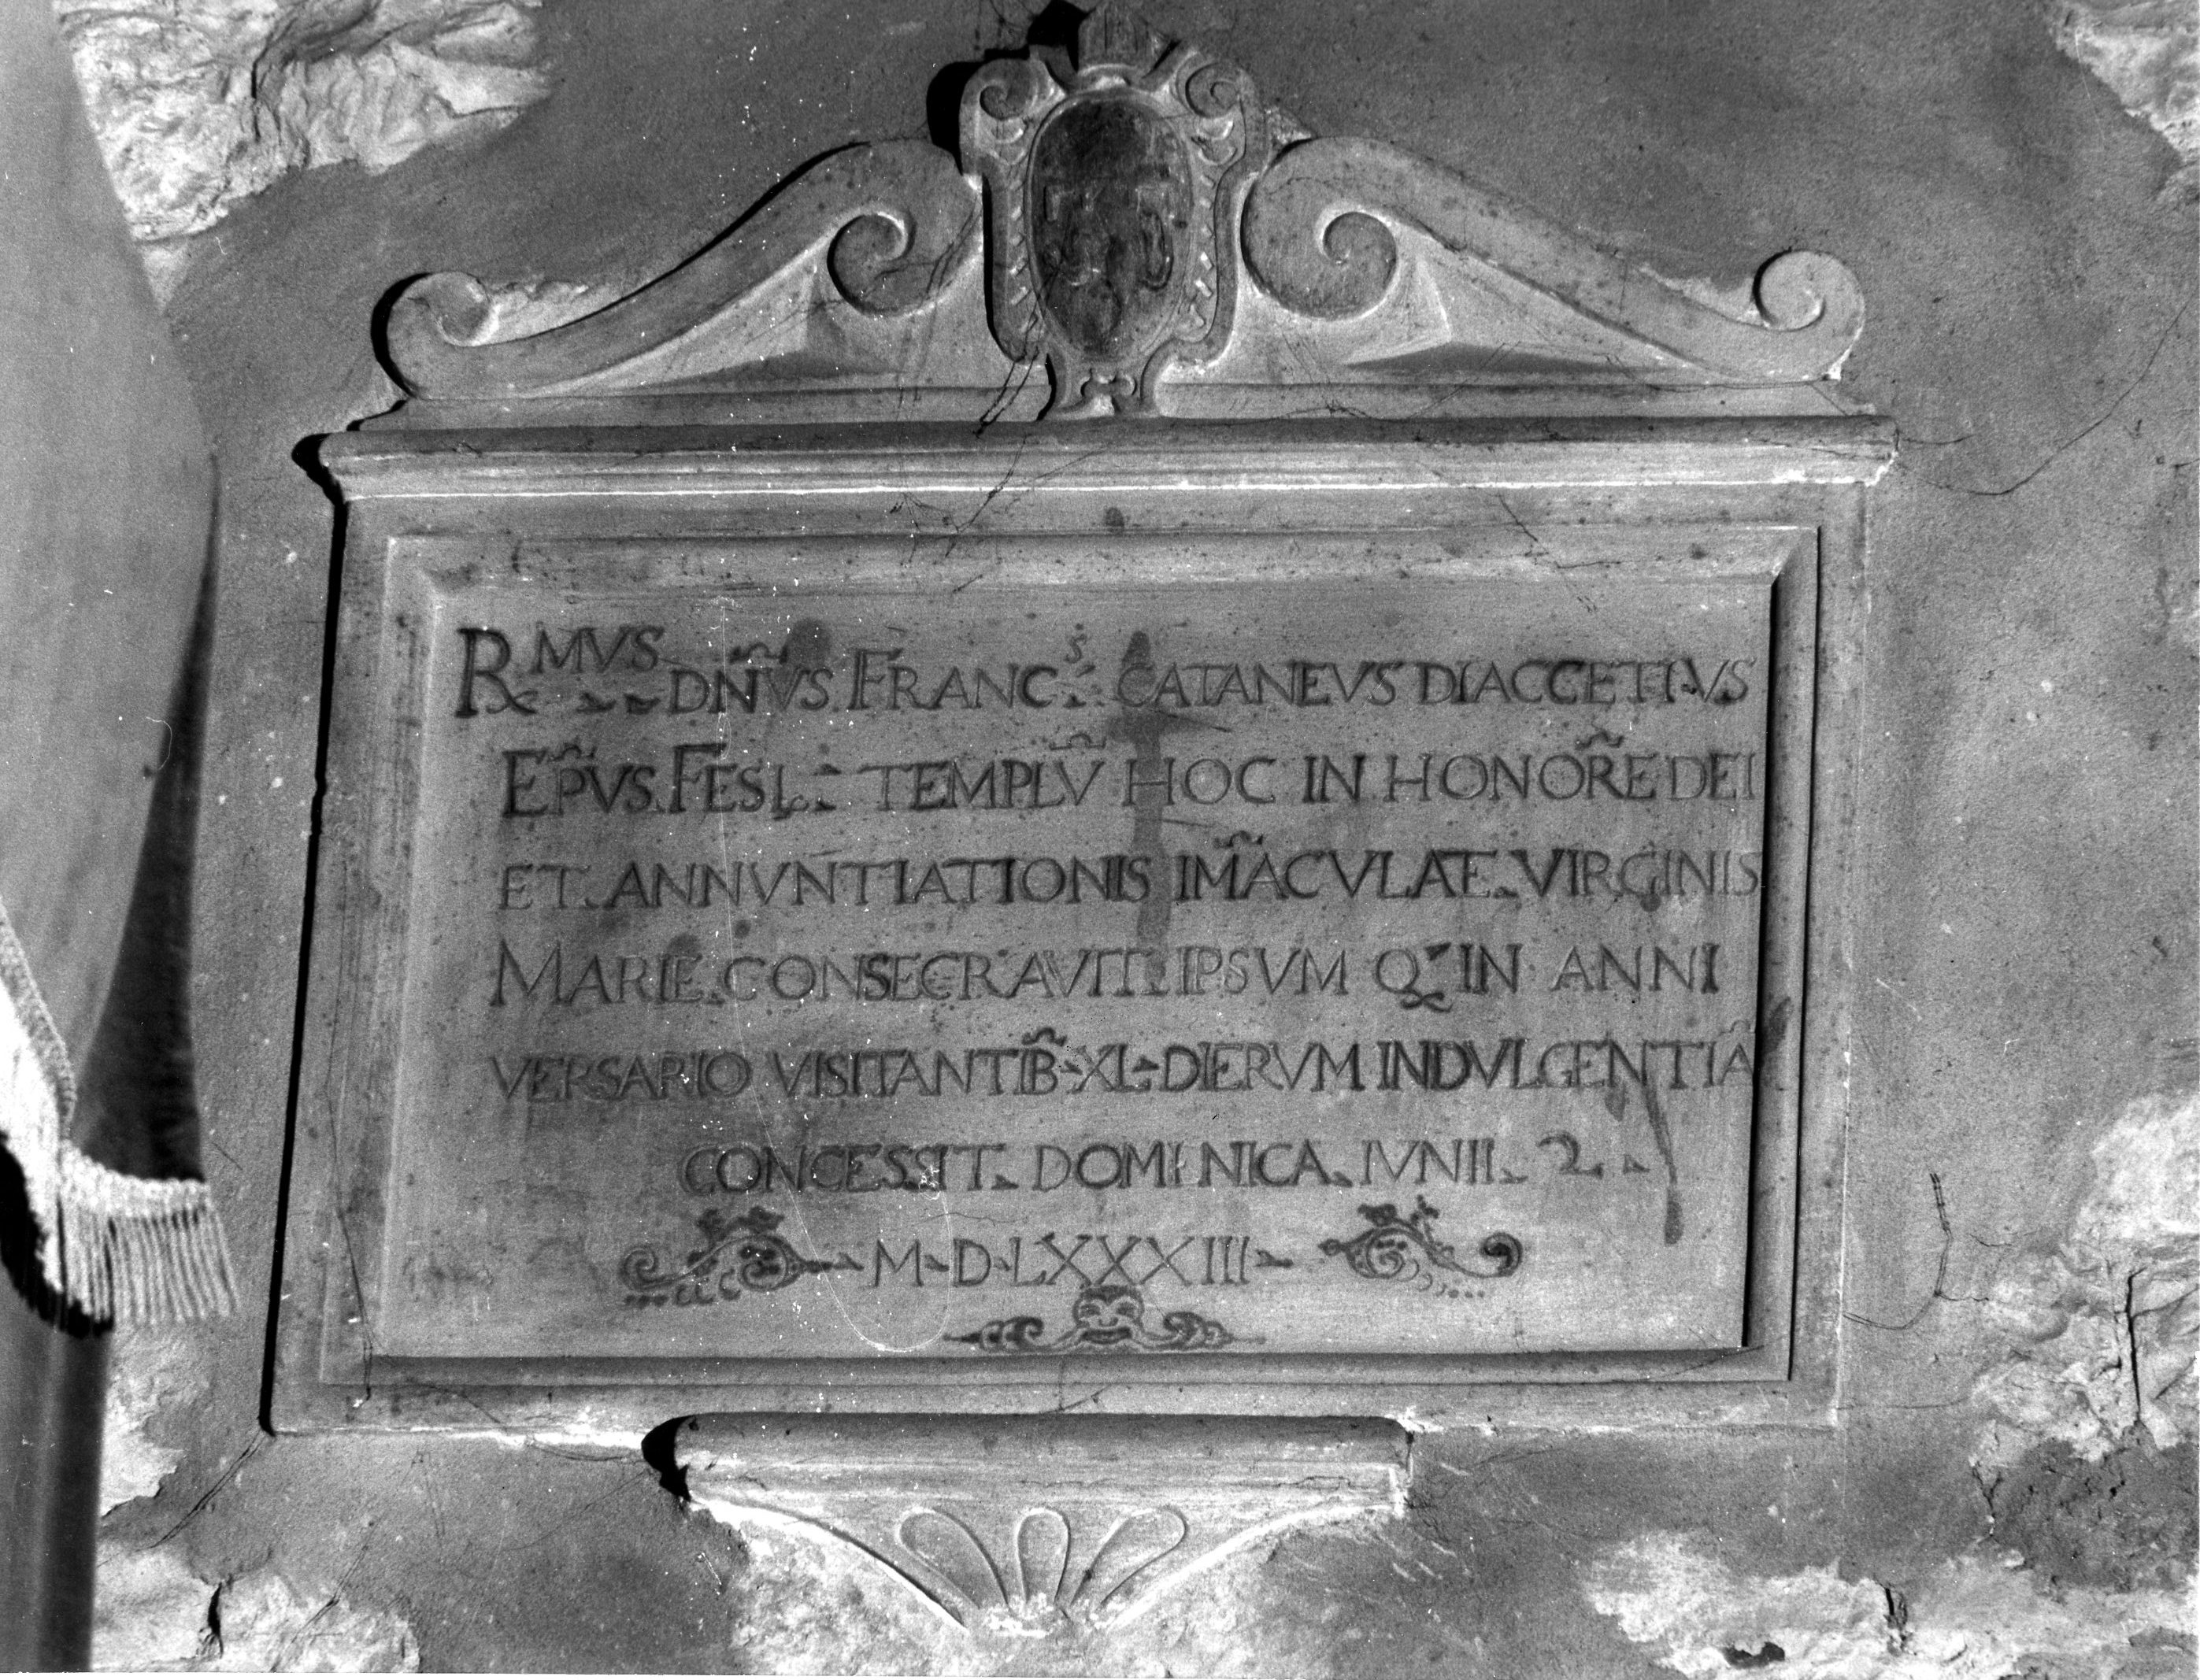 R^MVS DÑVS FRANC^S CATANEVS DIACCETIVS
EP̃VS FESL TEMPLṼ HOC IN HONOR̃E DEI
ET ANNVNTIATIONIS IM̃ACVLAE VIRGINIS
MARIE CONSECRAVIT IPSVM Q IN ANNI
VERSARIO VISITANTIB̃ XL DIERVM INDVLGENTIÃ
CONCESSIT DOMINICA IVNII 2
M D LXXXIII